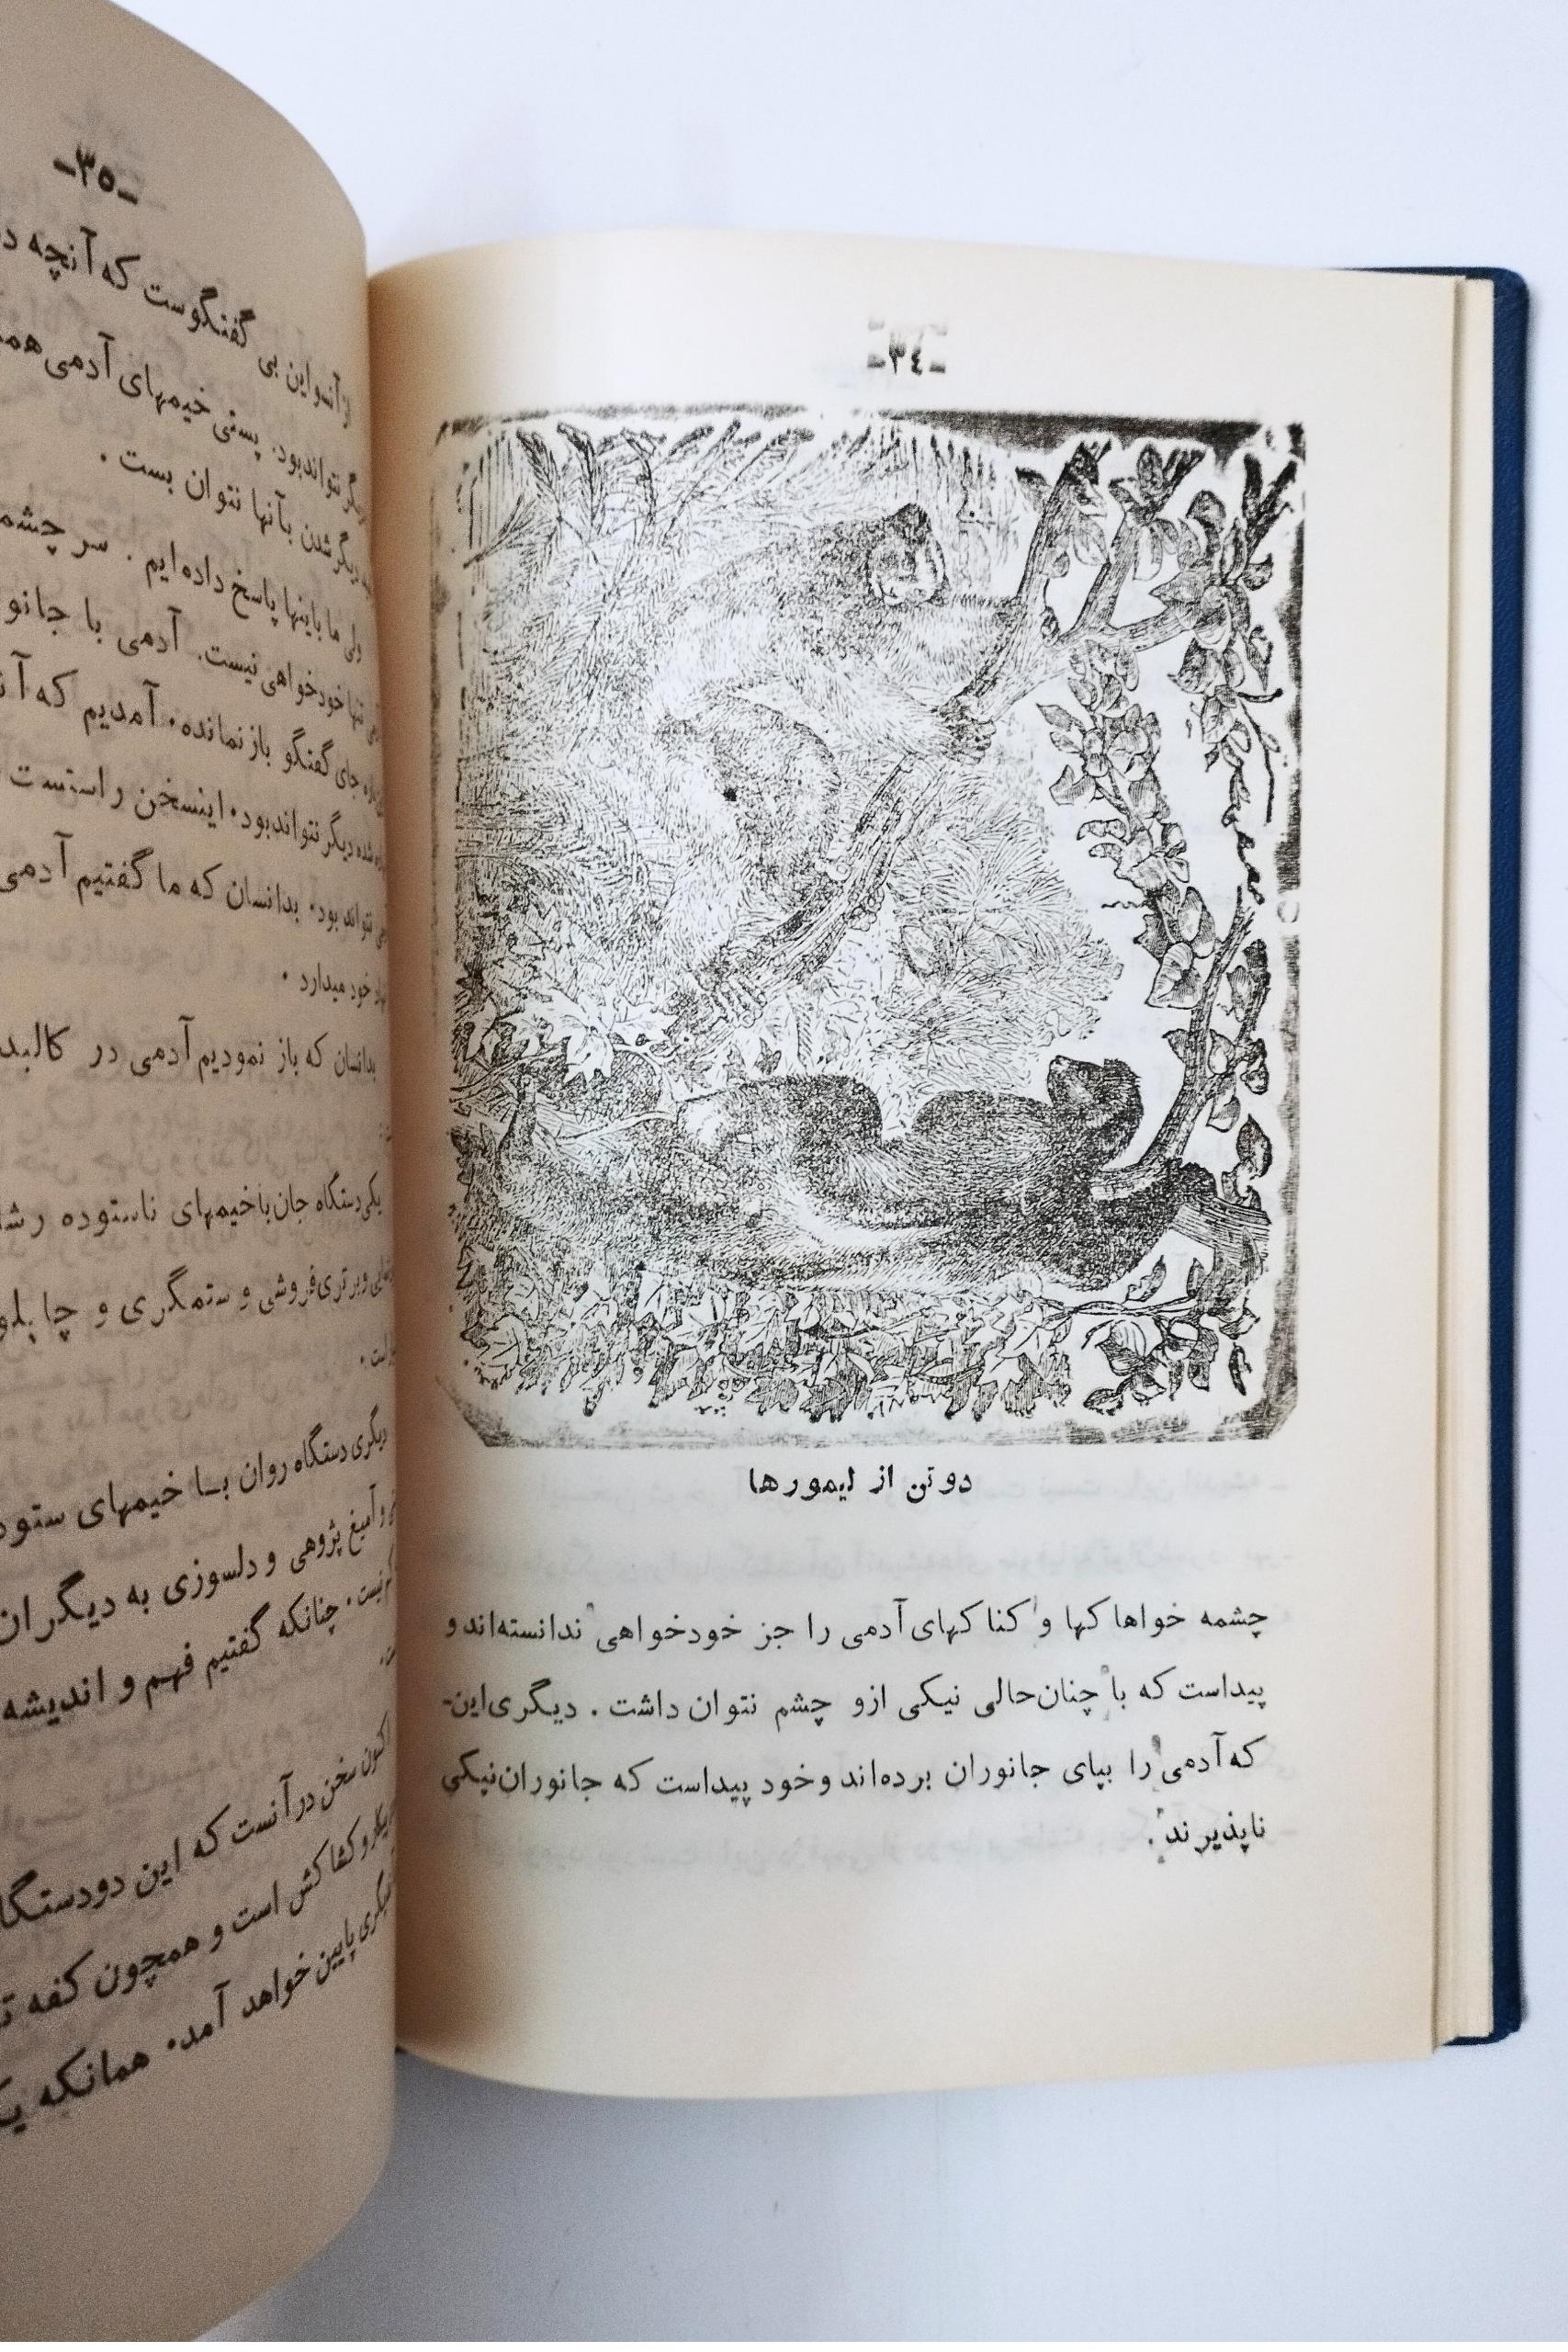 -٣٤-
دو تن از لیمورها
چشمه خواهاکها و کناکهای آدمی را جز خودخواهی ندانسته‌اند و
پیداست که با چنان حالی نیکی ازو چشم نتوان داشت . دیگری این-
که آدمی را بپای جانوران برده‌اند و خود پیداست که جانوران نیکی
ناپذیرند .
-٣٥-
از آنسو این بی گفتگوست که آنچه
دیگر نتواند بود. پستی خیمهای آدمی
دیگر شدن بآنها نتوان بست .
ولی ما باینها پاسخ داده‌ایم . سر چشمه
تنها خودخواهی نیست. آدمی با
جای گفتگو باز نمانده. آمدیم که
شده دیگر نتواند بود. اینسخن راستست
نتواند بود. بدانسان که ما گفتیم آدمی
خود میدارد .
بدانسان که باز نمودیم آدمی در کالبد
یکی دستگاه جان با خیمهای ناستوده
و برتری‌فروشی و ستمگری و
است .
دیگری دستگاه روان با خیمهای
و آمیغ پژوهی و دلسوزی به دیگران
نیست . چنانکه گفتیم فهم و اندیشه
اکنون سخن در آنست که این
و کشاکش است و همچون کفه
پایین خواهد آمد. همانکه